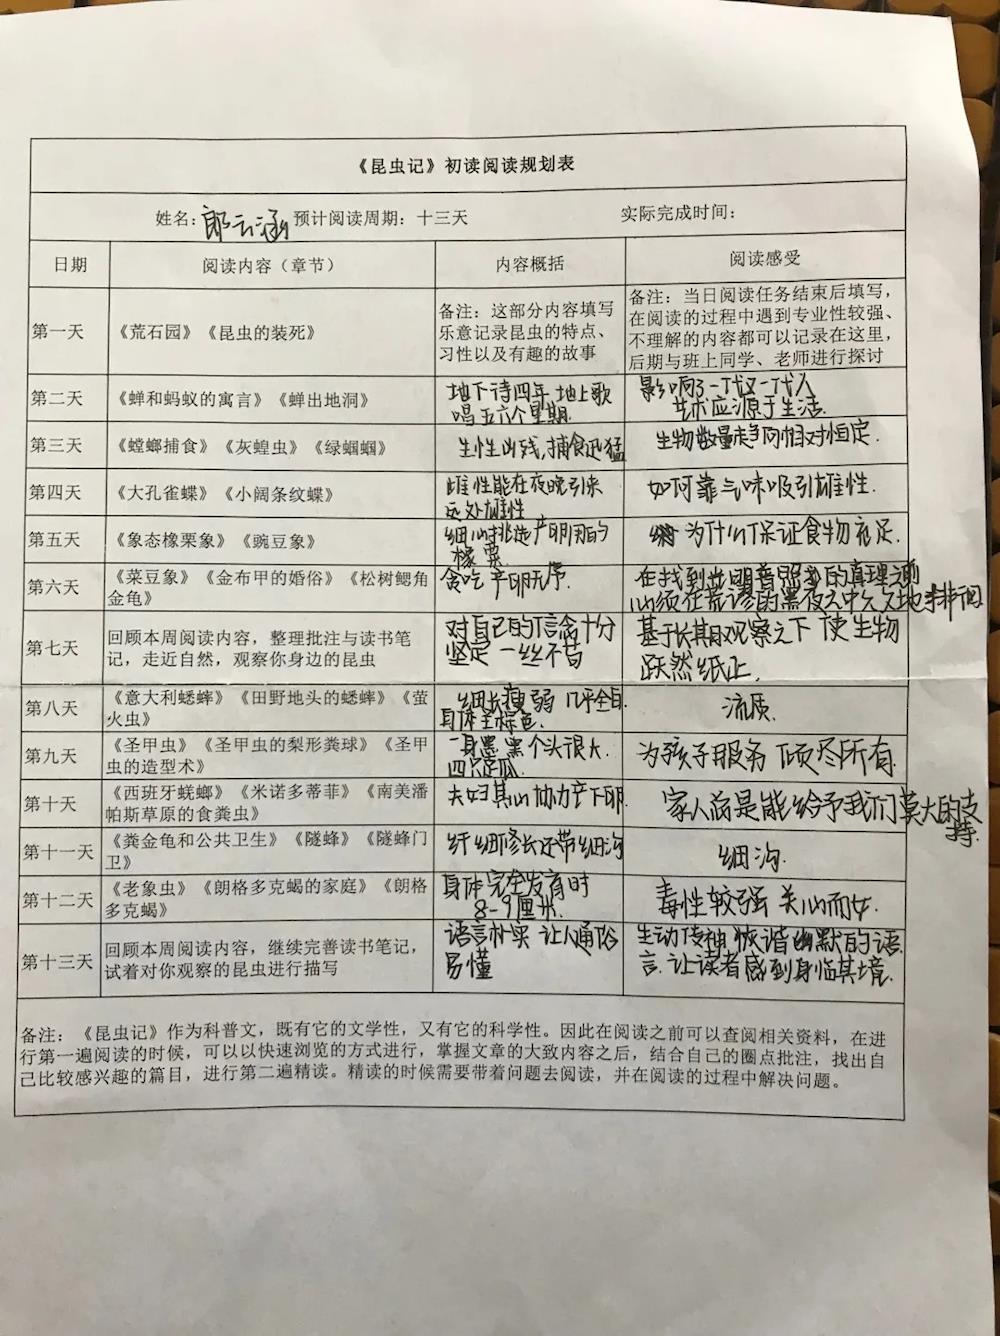 《昆虫记》初读阅读规划表
姓名: 郎云涵 预计阅读周期：十三天 实际完成时间：
日期 阅读内容（章节） 内容概括 阅读感受
第一天 《荒石园》《昆虫的装死》 备注：这部分内容填写 备注：当日阅读任务结束后填写，
乐意记录昆虫的特点、 在阅读的过程中遇到专业性较强、
习性以及有趣的故事 不理解的内容都可以记录在这里，
后期与班上同学、老师进行探讨
第二天 《蝉和蚂蚁的寓言》《蝉出地洞》 地下待四年 地上歌 影响了一代又一代人
唱五六个星期. 艺术应源于生活.
第三天 《螳螂捕食》《灰蝗虫》《绿蝈蝈》 生性凶残,捕食迅猛 生物数量趋于相对恒定.
第四天 《大孔雀蝶》《小阔条纹蝶》 雌性能在夜晚引来 如何靠气味吸引雄性.
远处雄性
第五天 《象态橡栗象》《豌豆象》 细心挑选产卵用的 为什么保证食物充足.
橡栗
第六天 《菜豆象》《金布甲的婚俗》《松树鳃角 贪吃 产卵无序. 在找到光明普照的真理之前
金龟》 心须在荒谬的黑夜之中久久地徘徊
第七天 回顾本周阅读内容，整理批注与读书笔 对自己的信念十分 基于长期观察之下 使生物
记，走近自然，观察你身边的昆虫 坚定 一丝不苟 跃然纸上.
第八天 《意大利蟋蟀》《田野地头的蟋蟀》《萤 细长瘦弱 几乎全身 流质.
火虫》 身体呈棕色.
第九天 《圣甲虫》《圣甲虫的梨形粪球》《圣甲 一身墨黑 个头很大 为孩子服务 倾尽所有.
虫的造型术》
第十天 《西班牙蜣螂》《米诺多蒂菲》《南美潘 夫妇其心协力产下卵 家人总是能给予我们莫大的支
帕斯草原的食粪虫》 持.
第十一天 《粪金龟和公共卫生》《隧蜂》《隧蜂门 纤细修长还带细沟 细沟.
卫》
第十二天 《老象虫》《朗格多克蝎的家庭》《朗格 身体完全发育时 毒性较强 关心而女.
多克蝎》 8-9厘米.
第十三天 回顾本周阅读内容，继续完善读书笔记， 语言朴实 让人通俗 生动传神 诙谐幽默的语
试着对你观察的昆虫进行描写 易懂 言.让读者感到身临其境.
备注：《昆虫记》作为科普文，既有它的文学性，又有它的科学性。因此在阅读之前可以查阅相关资料，在进
行第一遍阅读的时候，可以以快速浏览的方式进行，掌握文章的大致内容之后，结合自己的圈点批注，找出自
己比较感兴趣的篇目，进行第二遍精读。精读的时候需要带着问题去阅读，并在阅读的过程中解决问题。